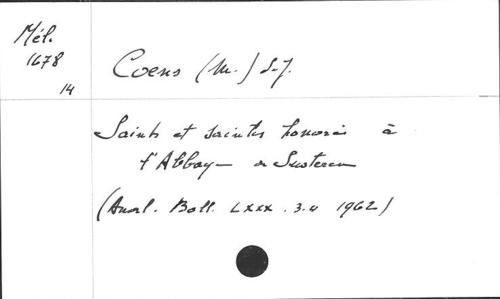 Mél.
1678
14
Coens (M.) S.J.
Saints et saintes honorés à
l'Abbaye de Susteren
(Anal. Boll. LXXX. 3.4 1962)